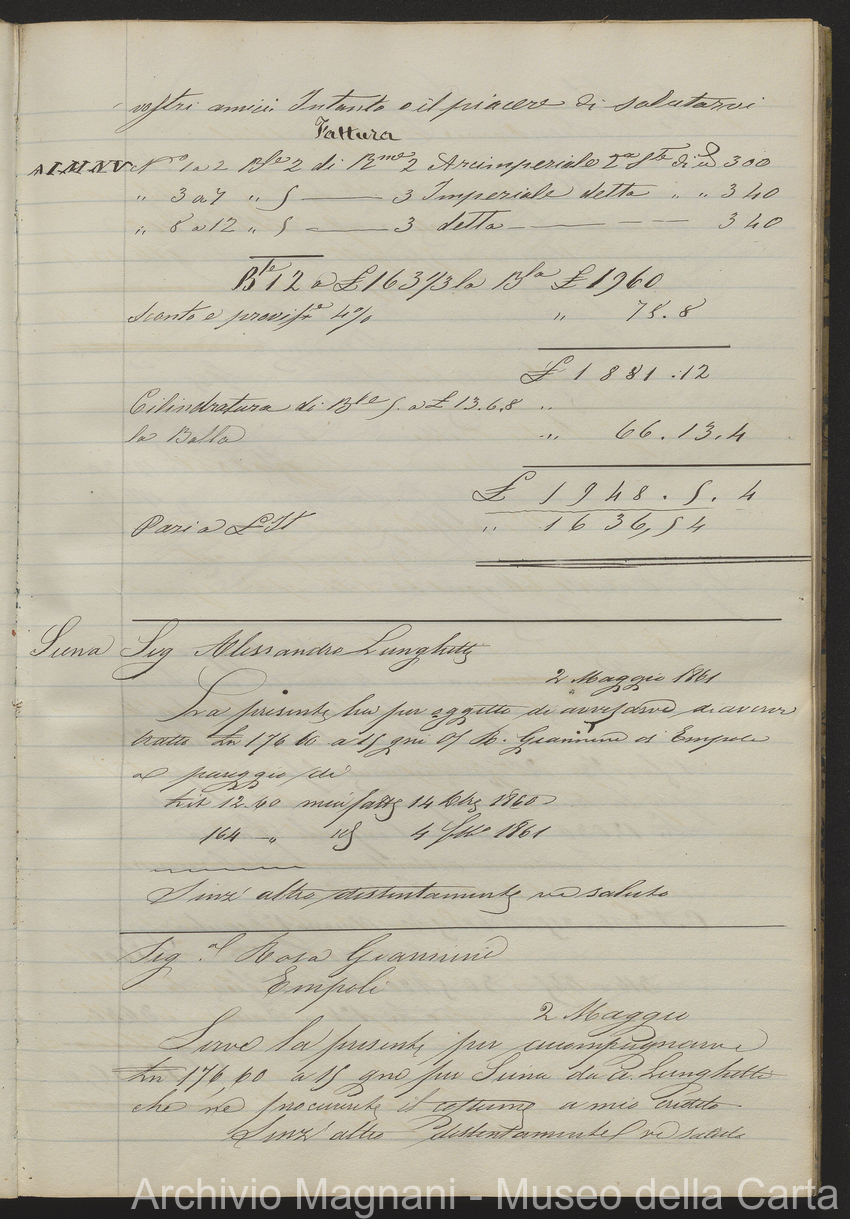 vostri amici. Intanto o il piacere di salutarvi
Fattura
N° 1 a 2 Ble 2 di Rme 2 Arcimperiale 2a Ste di 300
" 3 a 7 " 5 — 3 Imperiale detta " " 340
" 8 a 12 " 5 — 3 detta — — 340
Ble 12 a £ 163 1/3 la Bla £ 1960
Sconto e provise 4% " 78.8
£ 1881.12
Cilindratura di Ble 5. a £ 13.6.8 "
la Balla " 66.13.4
£ 1948.5.4
Pari a £ It " 1636,54
Siena Sig Alessandro Lunghetti
2 Maggio 1861
La presente ha per oggetto di avvisarvi di avervi
tratto Ln 176 60 a 15 gni o/ R. Giannini di Empoli
a pareggio di
Lit 12.60 mia fatta 14 Xbre 1860
164 — " 4 1861
Senz' altro distintamente vi saluto
Sig.a Rosa Giannini
Empoli
2 Maggio
Serve la presente per accompagnarvi
Ln 176,60 a 15 gni per Siena da A. Lunghetti
che ne procurerete il a mio credito
Senz' altro distintamente vi saluto
Archivio Magnani - Museo della Carta